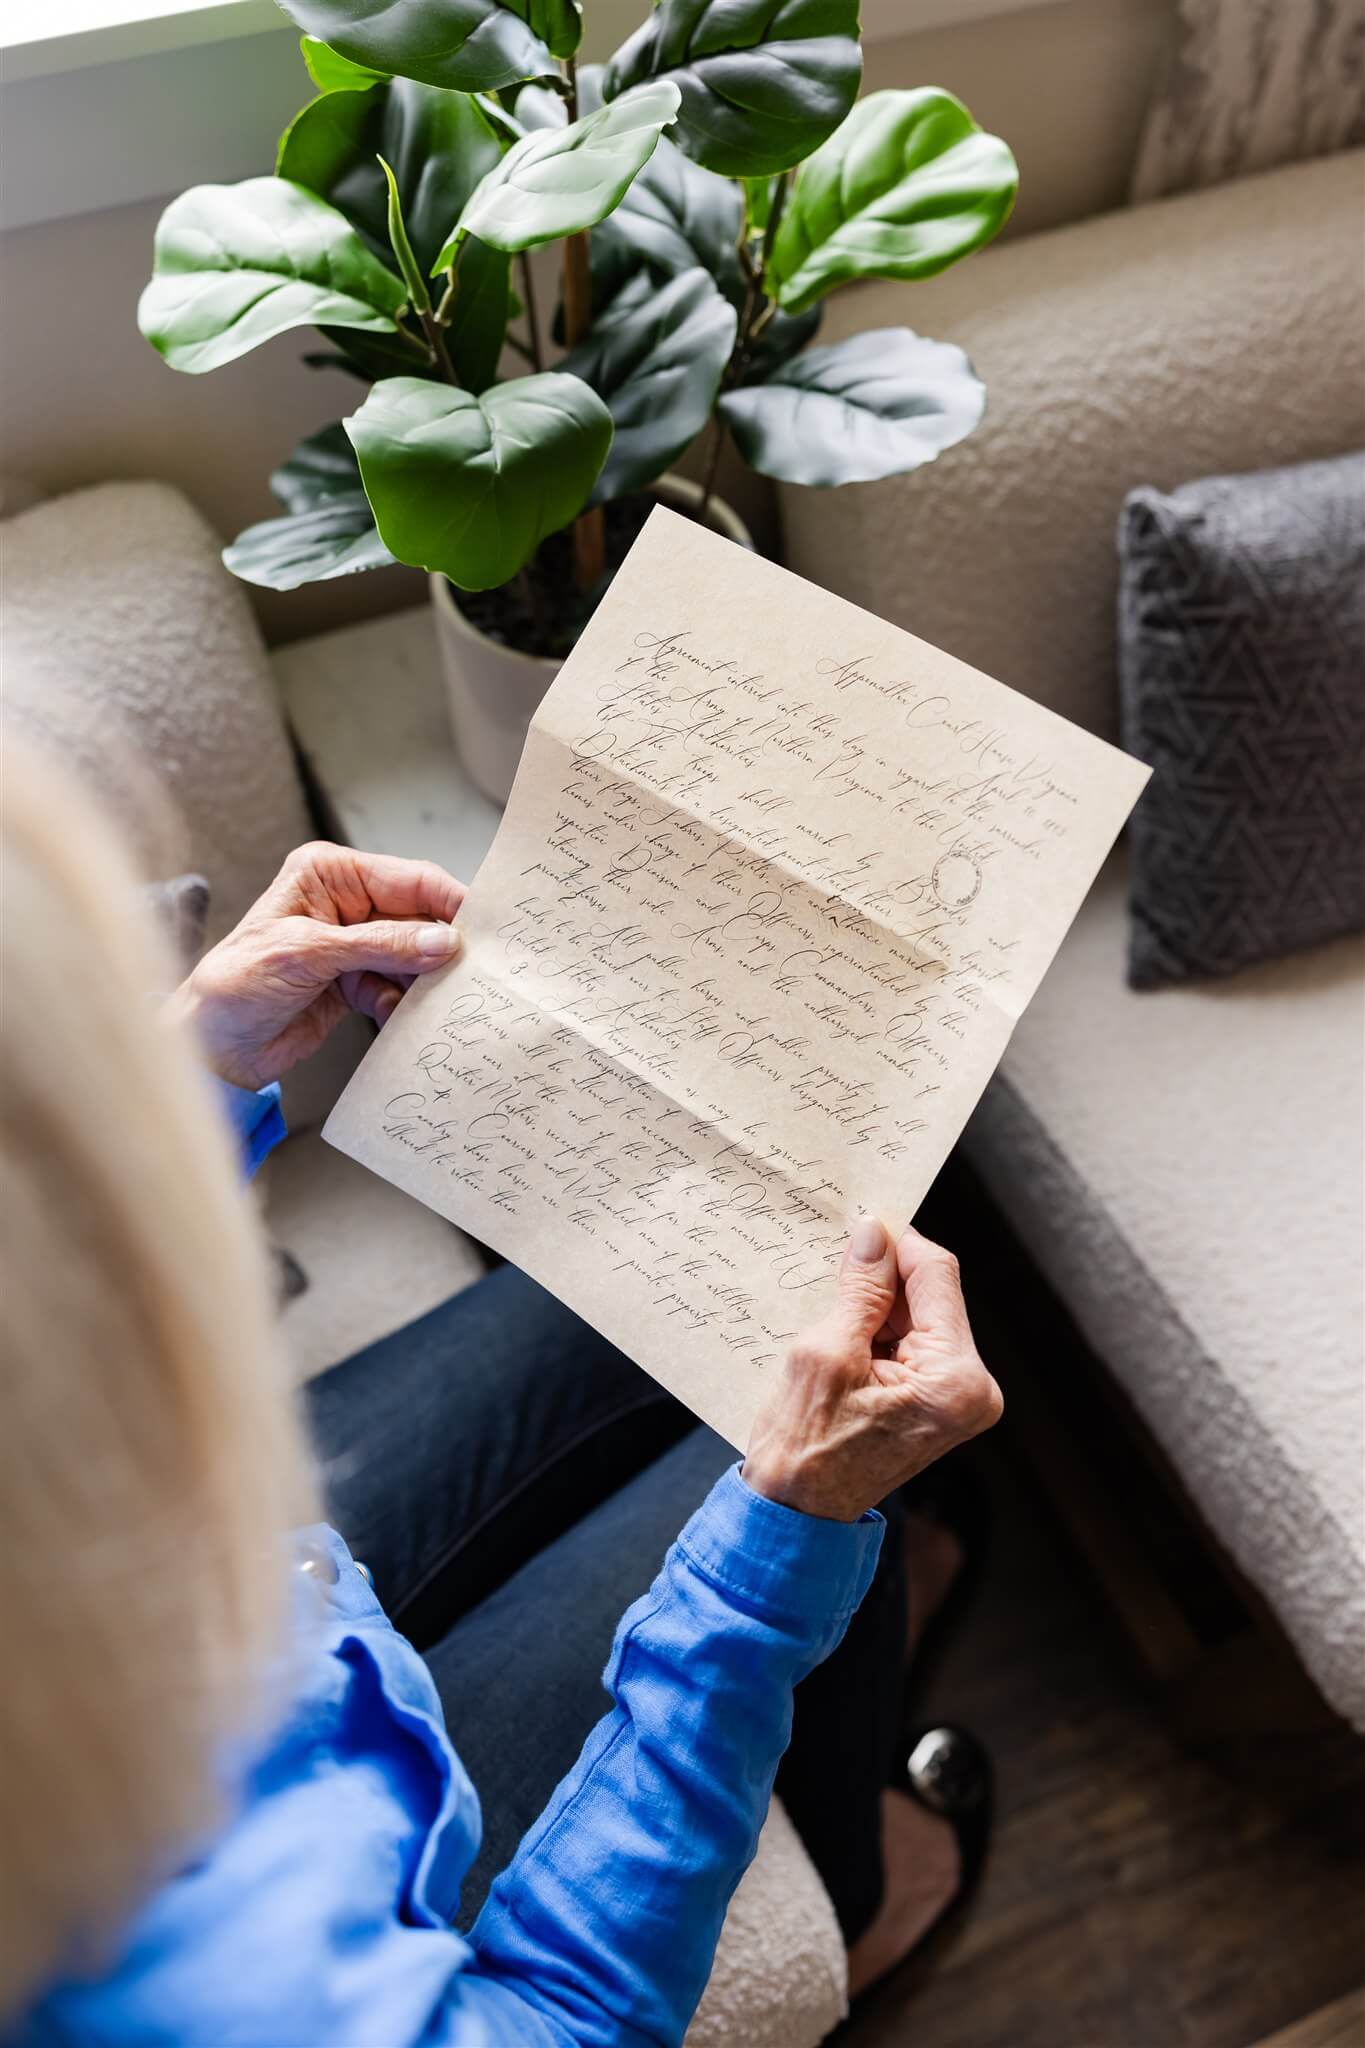 Appomattox Court House Virginia
April 10 1865
Agreement entered into this day in regard to the surrender
of the Army of Northern Virginia to the United
States Authorities
1st. The troops shall march by Brigades and
Detachments to a designated point, stack their Arms, deposit
their flags, Sabres, Pistols, etc. and from thence march to their
homes under charge of their Officers, superintended by their
respective Division and Corps Commanders, Officers,
retaining their side Arms, and the authorized number of
private horses
2. All public horses and public property of all
kinds to be turned over to Staff Officers designated by the
United States Authorities
3 Such transportation as may be agreed upon as
necessary for the transportation of the Private baggage of
Officers will be allowed to accompany the Officers, to be
turned over at the end of the trip to the nearest US
Quarter Masters, receipts being taken for the same
4. Couriers and Wounded men of the artillery and
Cavalry whose horses are their own private property will be
allowed to retain them